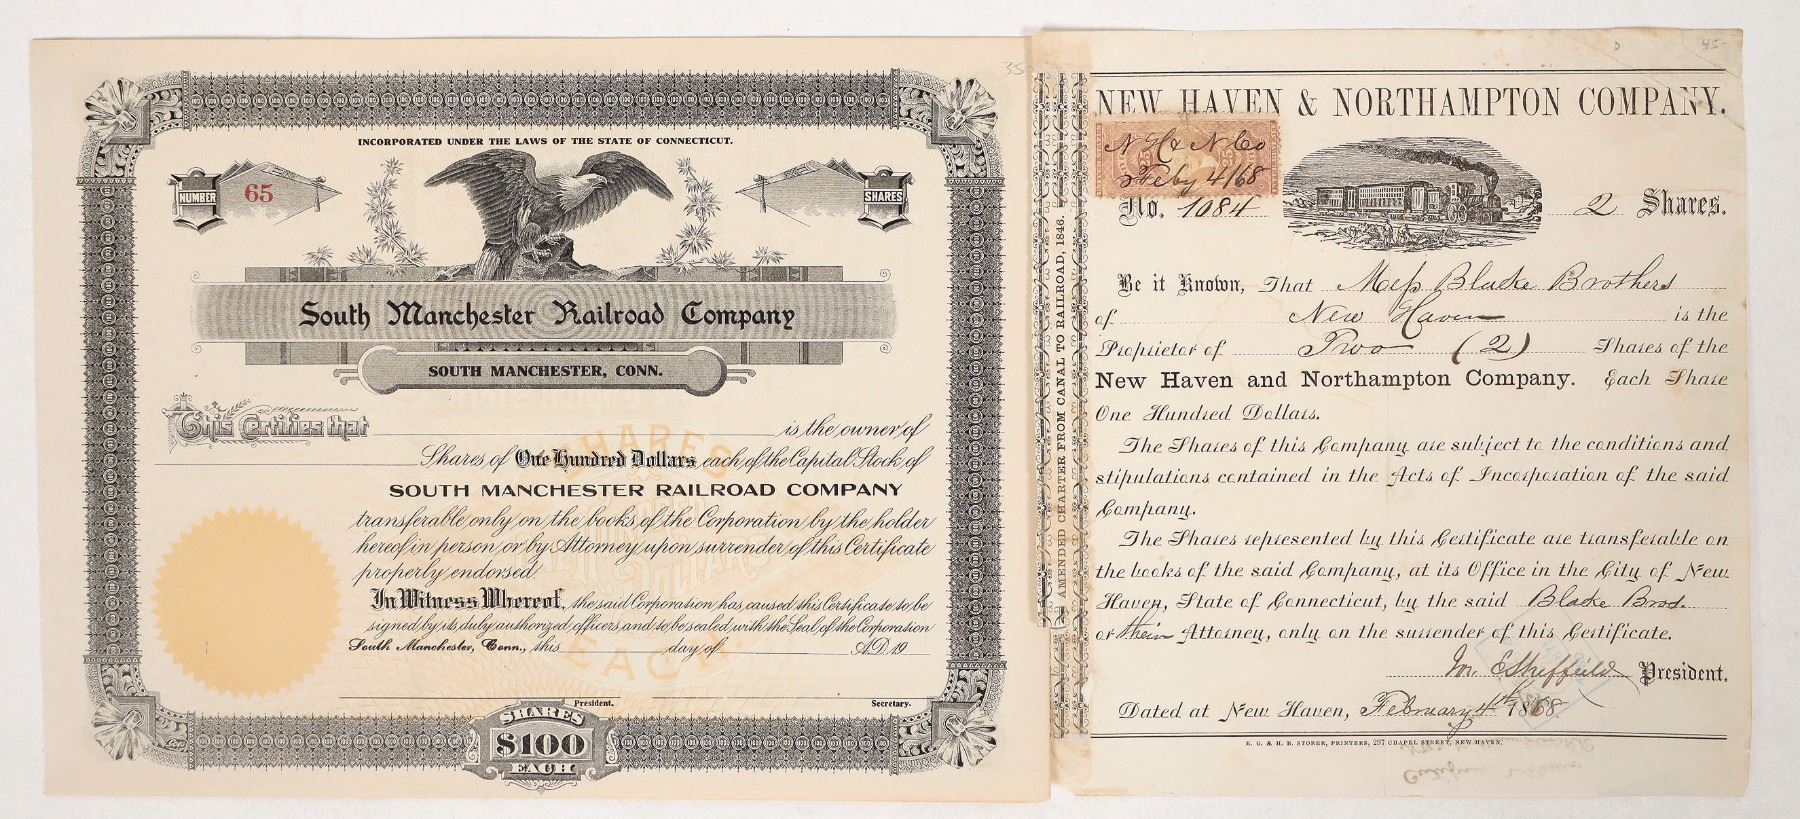 INCORPORATED UNDER THE LAWS OF THE STATE OF CONNECTICUT.
NUMBER 65
SHARES
South Manchester Railroad Company
SOUTH MANCHESTER, CONN.
This Certifies that is the owner of
Shares of One Hundred Dollars each of the Capital Stock of
SOUTH MANCHESTER RAILROAD COMPANY
transferable only on the books of the Corporation by the holder
hereof in person or by Attorney upon surrender of this Certificate
properly endorsed.
In Witness Whereof, the said Corporation has caused this Certificate to be
signed by its duly authorized officers and to be sealed with the Seal of the Corporation
South Manchester, Conn., this day of A.D. 19
President. Secretary.
SHARES
$100
EACH
SHARES
DOLLARS
EACH
35-
D 45-
AMENDED CHARTER FROM CANAL TO RAILROAD, 1846.
NEW HAVEN & NORTHAMPTON COMPANY.
N H & N Co
Feby 4/68
No. 1084
2 Shares.
Be it Known, That Mess Blake Brothers
of New Haven is the
Proprietor of Two (2) Shares of the
New Haven and Northampton Company. Each Share
One Hundred Dollars.
The Shares of this Company are subject to the conditions and
stipulations contained in the Acts of Incorporation of the said
Company.
The Shares represented by this Certificate are transferable on
the books of the said Company, at its Office in the City of New
Haven, State of Connecticut, by the said Blake Bros.
or their Attorney, only on the surrender of this Certificate.
Jos. E Sheffield President.
Dated at New Haven, February 4th 1868
E. G. & H. B. STORER, PRINTERS, 297 CHAPEL STREET, NEW HAVEN.